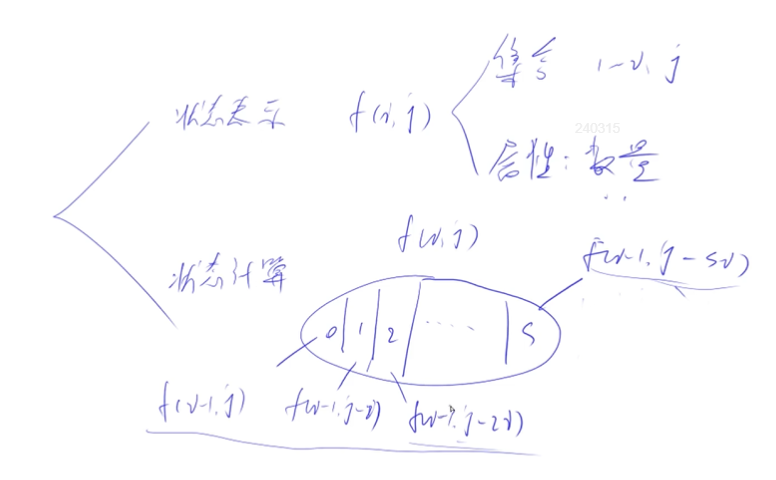 集合 1~i, j
状态表示 f(i, j)
240315
属性: 数量
f(i, j)
f(i-1, j-si)
状态计算
0 1 2 ..... s
f(i-1, j) f(i-1, j-i) f(i-1, j-2i)